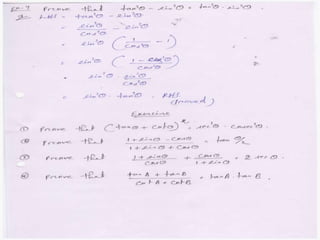 Ex-7 Prove that tan²θ - sin²θ = tan²θ · sin²θ
LHS = tan²θ - sin²θ
= sin²θ/cos²θ - sin²θ
= sin²θ (1/cos²θ - 1)
= sin²θ (1 - cos²θ/cos²θ)
= sin²θ · sin²θ/cos²θ
= sin²θ · tan²θ = RHS
(proved)
Exercise
① Prove that (tanθ + cotθ)² = sec²θ · cosec²θ.
② Prove that 1 + sinθ - cosθ/1 + sinθ + cosθ = tan θ/2
③ Prove that 1 + sinθ/cosθ + cosθ/1 + sinθ = 2 secθ.
④ Prove that tanA + tanB/cotA + cotB = tanA · tanB.